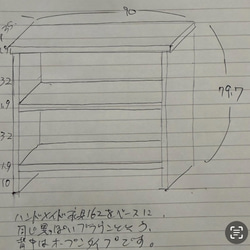 90
1.9
32
1.9
32
1.9
10
79.7
ハンドメイド家具162をベースに、
同じ黒っぽいブラウンとそう。
背中はオープンタイプです。